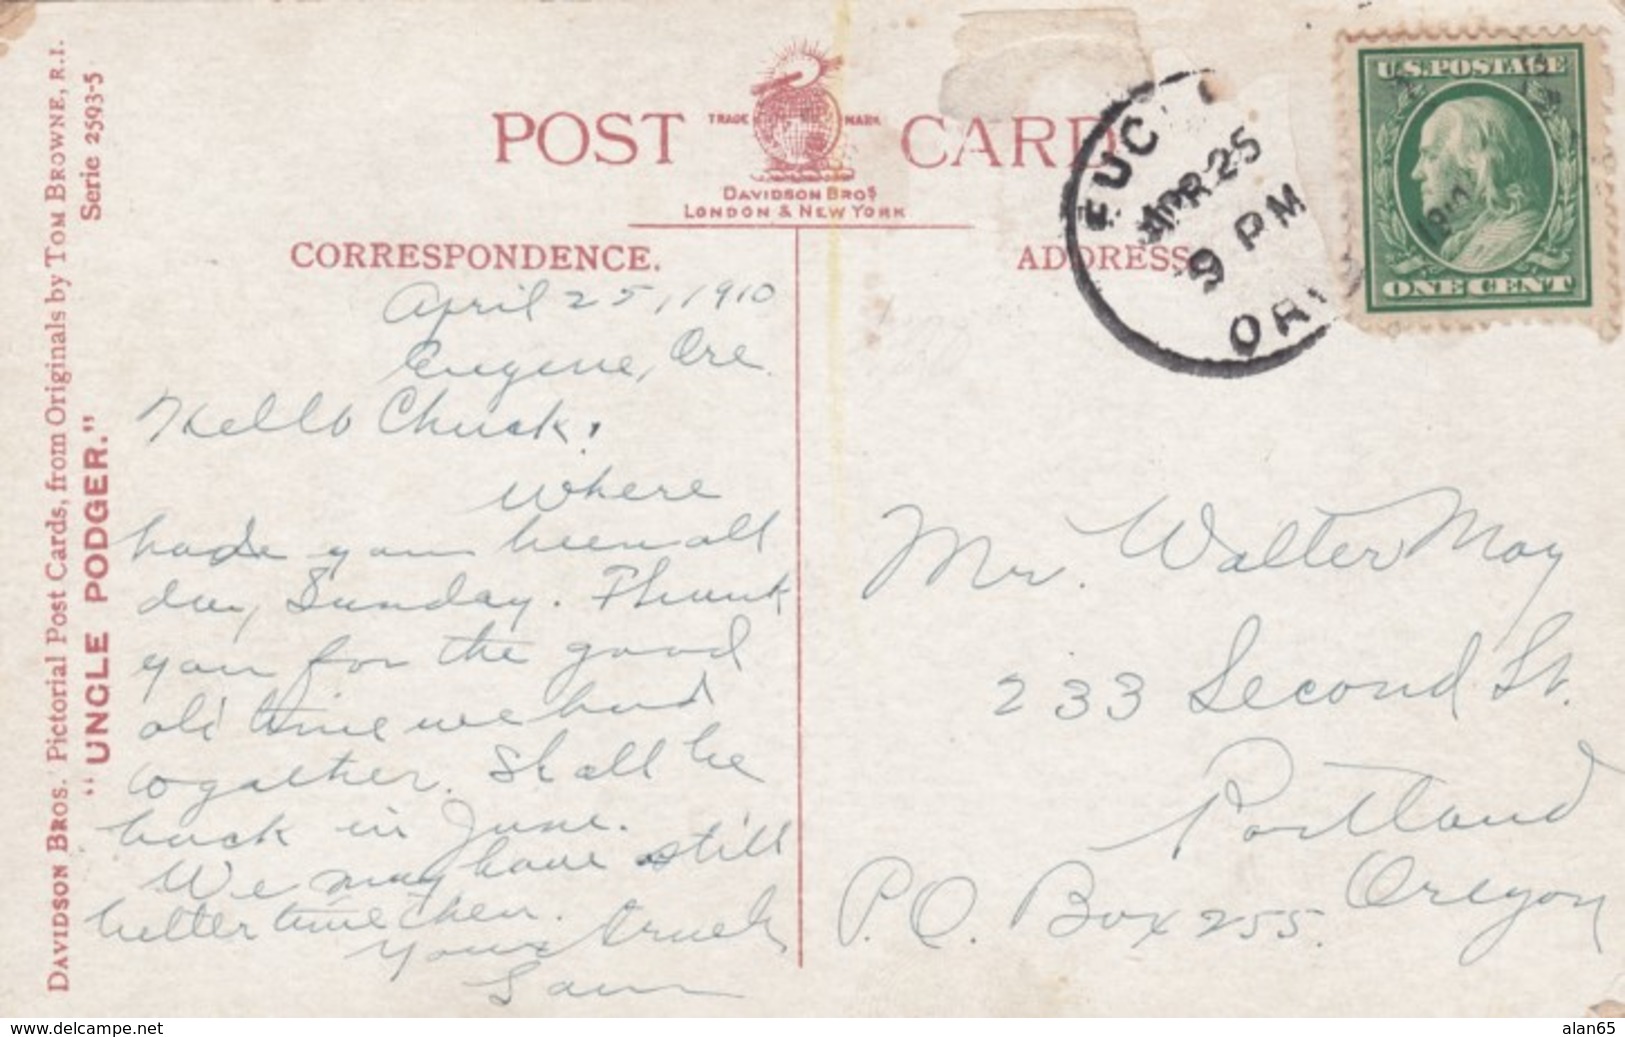 DAVIDSON BROS.' Pictorial Post Cards, from Originals by TOM BROWNE, R.I.
Serie 2593-5
"UNCLE PODGER."
POST CARD
TRADE MARK
DAVIDSON BROS
LONDON & NEW YORK
CORRESPONDENCE.
ADDRESS
APR 25
9 PM
1910
U.S. POSTAGE
ONE CENT
April 25, 1910
Eugene, Ore.
Hello Chuck.
Where
have you been all
day, Sunday. Thank
you for the good
old time we had
together. Shall be
back in June.
We may have still
better time then.
Yours truely
Sam
Mr. Walter May
233 Second St.
Portland
Oregon
P.O. Box 255.
www.delcampe.net
alan65